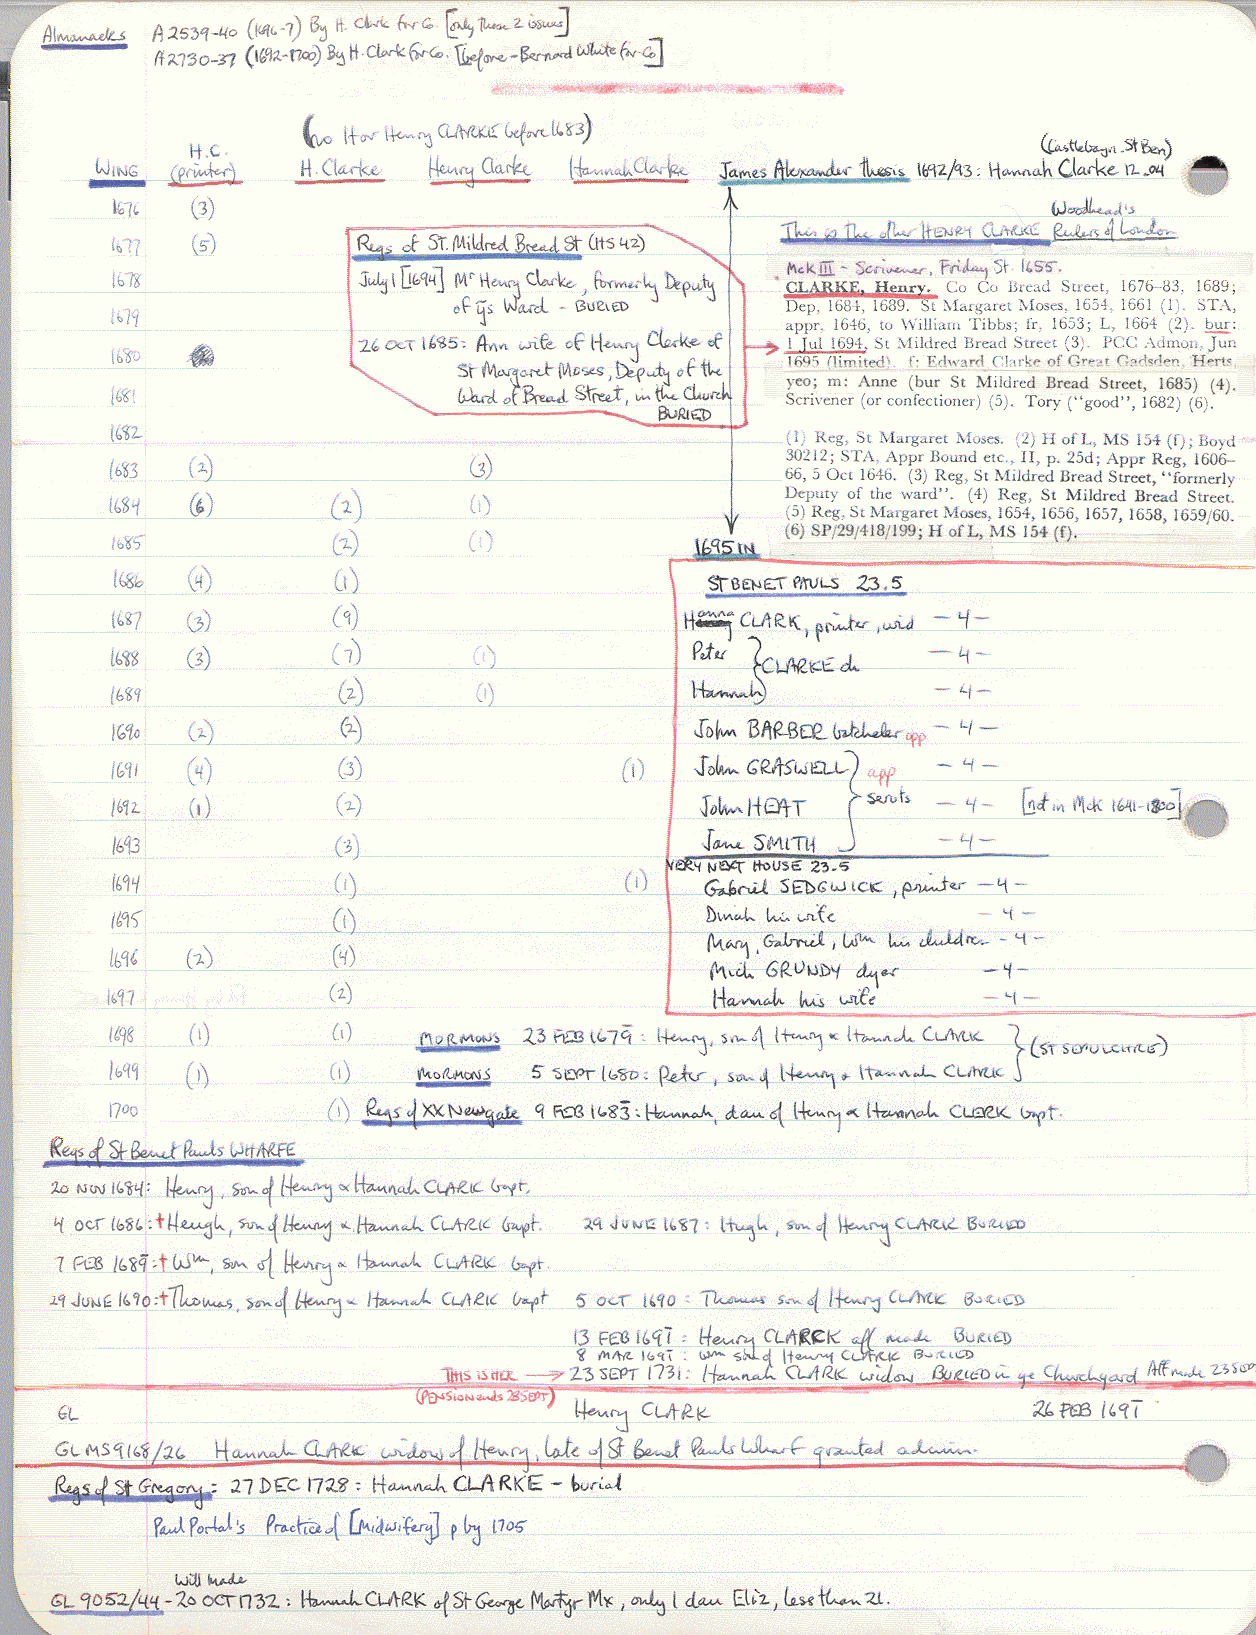 Almanacks A2539-40 (1696-7) By H. Clark for Co. [only these 2 issues]
A2730-37 (1692-1700) By H. Clark for Co. [before - Bernard White for Co]
(no H or Henry CLARKE before 1683)
WING H.C. (printer) H. Clarke Henry Clarke Hannah Clarke
James Alexander thesis 1692/93: Hannah Clarke 12.04
(Castlebayn. St Ben)
1676 (3)
1677 (5)
1678
1679
1680
1681
1682
1683 (2) (3)
1684 (6) (2) (1)
1685 (2) (1)
1686 (4) (1)
1687 (3) (9)
1688 (3) (7) (1)
1689 (2) (1)
1690 (2) (2)
1691 (4) (3) (1)
1692 (1) (2)
1693 (3)
1694 (1) (1)
1695 (1)
1696 (2) (4)
1697 (2)
1698 (1) (1)
1699 (1) (1)
1700 (1)
Regs of St. Mildred Bread St (HS 42)
July 1 [1694] Mr Henry Clarke, formerly Deputy
of ys Ward - BURIED
26 OCT 1685: Ann wife of Henry Clarke of
St Margaret Moses, Deputy of the
Ward of Bread Street, in the Church
BURIED
This is the other HENRY CLARKE Woodhead's Rulers of London
McK III - Scrivener, Friday St. 1655.
CLARKE, Henry. Co Co Bread Street, 1676-83, 1689;
Dep, 1684, 1689. St Margaret Moses, 1654, 1661 (1). STA,
appr, 1646, to William Tibbs; fr, 1653; L, 1664 (2). bur:
1 Jul 1694, St Mildred Bread Street (3). PCC Admon, Jun
1695 (limited). f: Edward Clarke of Great Gadsden, Herts,
yeo; m: Anne (bur St Mildred Bread Street, 1685) (4).
Scrivener (or confectioner) (5). Tory ("good", 1682) (6).
(1) Reg, St Margaret Moses. (2) H of L, MS 154 (f); Boyd
30212; STA, Appr Bound etc., II, p. 25d; Appr Reg, 1606-
66, 5 Oct 1646. (3) Reg, St Mildred Bread Street, "formerly
Deputy of the ward". (4) Reg, St Mildred Bread Street.
(5) Reg, St Margaret Moses, 1654, 1656, 1657, 1658, 1659/60.
(6) SP/29/418/199; H of L, MS 154 (f).
1695 IN
ST BENET PAULS 23.5
Hanna CLARK, printer, wid - 4 -
Peter - 4 -
CLARKE ch
Hannah - 4 -
John BARBER batcheler app - 4 -
John GRASWELL app - 4 -
John HEAT servts - 4 - [not in McK 1641-1800]
Jane SMITH - 4 -
VERY NEXT HOUSE 23.5
Gabriel SEDGWICK, printer - 4 -
Dinah his wife - 4 -
Mary, Gabriel, Wm his children - 4 -
Mich GRUNDY dyer - 4 -
Hannah his wife - 4 -
MORMONS 23 FEB 1679: Henry, son of Henry & Hannah CLARK
MORMONS 5 SEPT 1680: Peter, son of Henry & Hannah CLARK
(ST SEPULCHRE)
Regs of XX Newgate 9 FEB 1683: Hannah, dau of Henry & Hannah CLERK bapt.
Regs of St Benet Pauls WHARFE
20 NOV 1684: Henry, son of Henry & Hannah CLARK bapt.
4 OCT 1686: † Heugh, son of Henry & Hannah CLARK bapt. 29 JUNE 1687: Hugh, son of Henry CLARK BURIED
7 FEB 1689: † Wm, son of Henry & Hannah CLARK bapt.
29 JUNE 1690: † Thomas, son of Henry & Hannah CLARK bapt 5 OCT 1690: Thomas son of Henry CLARK BURIED
13 FEB 1691: Henry CLARCK aff made BURIED
8 MAR 1691: Wm son of Henry CLARK BURIED
THIS IS HER → 23 SEPT 1731: Hannah CLARK widow BURIED in ye Churchyard Aff made 23 SEP
(PENSION ends 23 SEPT)
GL Henry CLARK 26 FEB 1691
GL MS 9168/26 Hannah CLARK widow of Henry, late of St Benet Pauls Wharf granted admin.
Regs of St Gregory: 27 DEC 1728: Hannah CLARKE - burial
Paul Portal's Practice of [Midwifery] p by 1705
Will made
GL 9052/44 - 20 OCT 1732: Hannah CLARK of St George Martyr Mx, only 1 dau Eliz, less than 21.